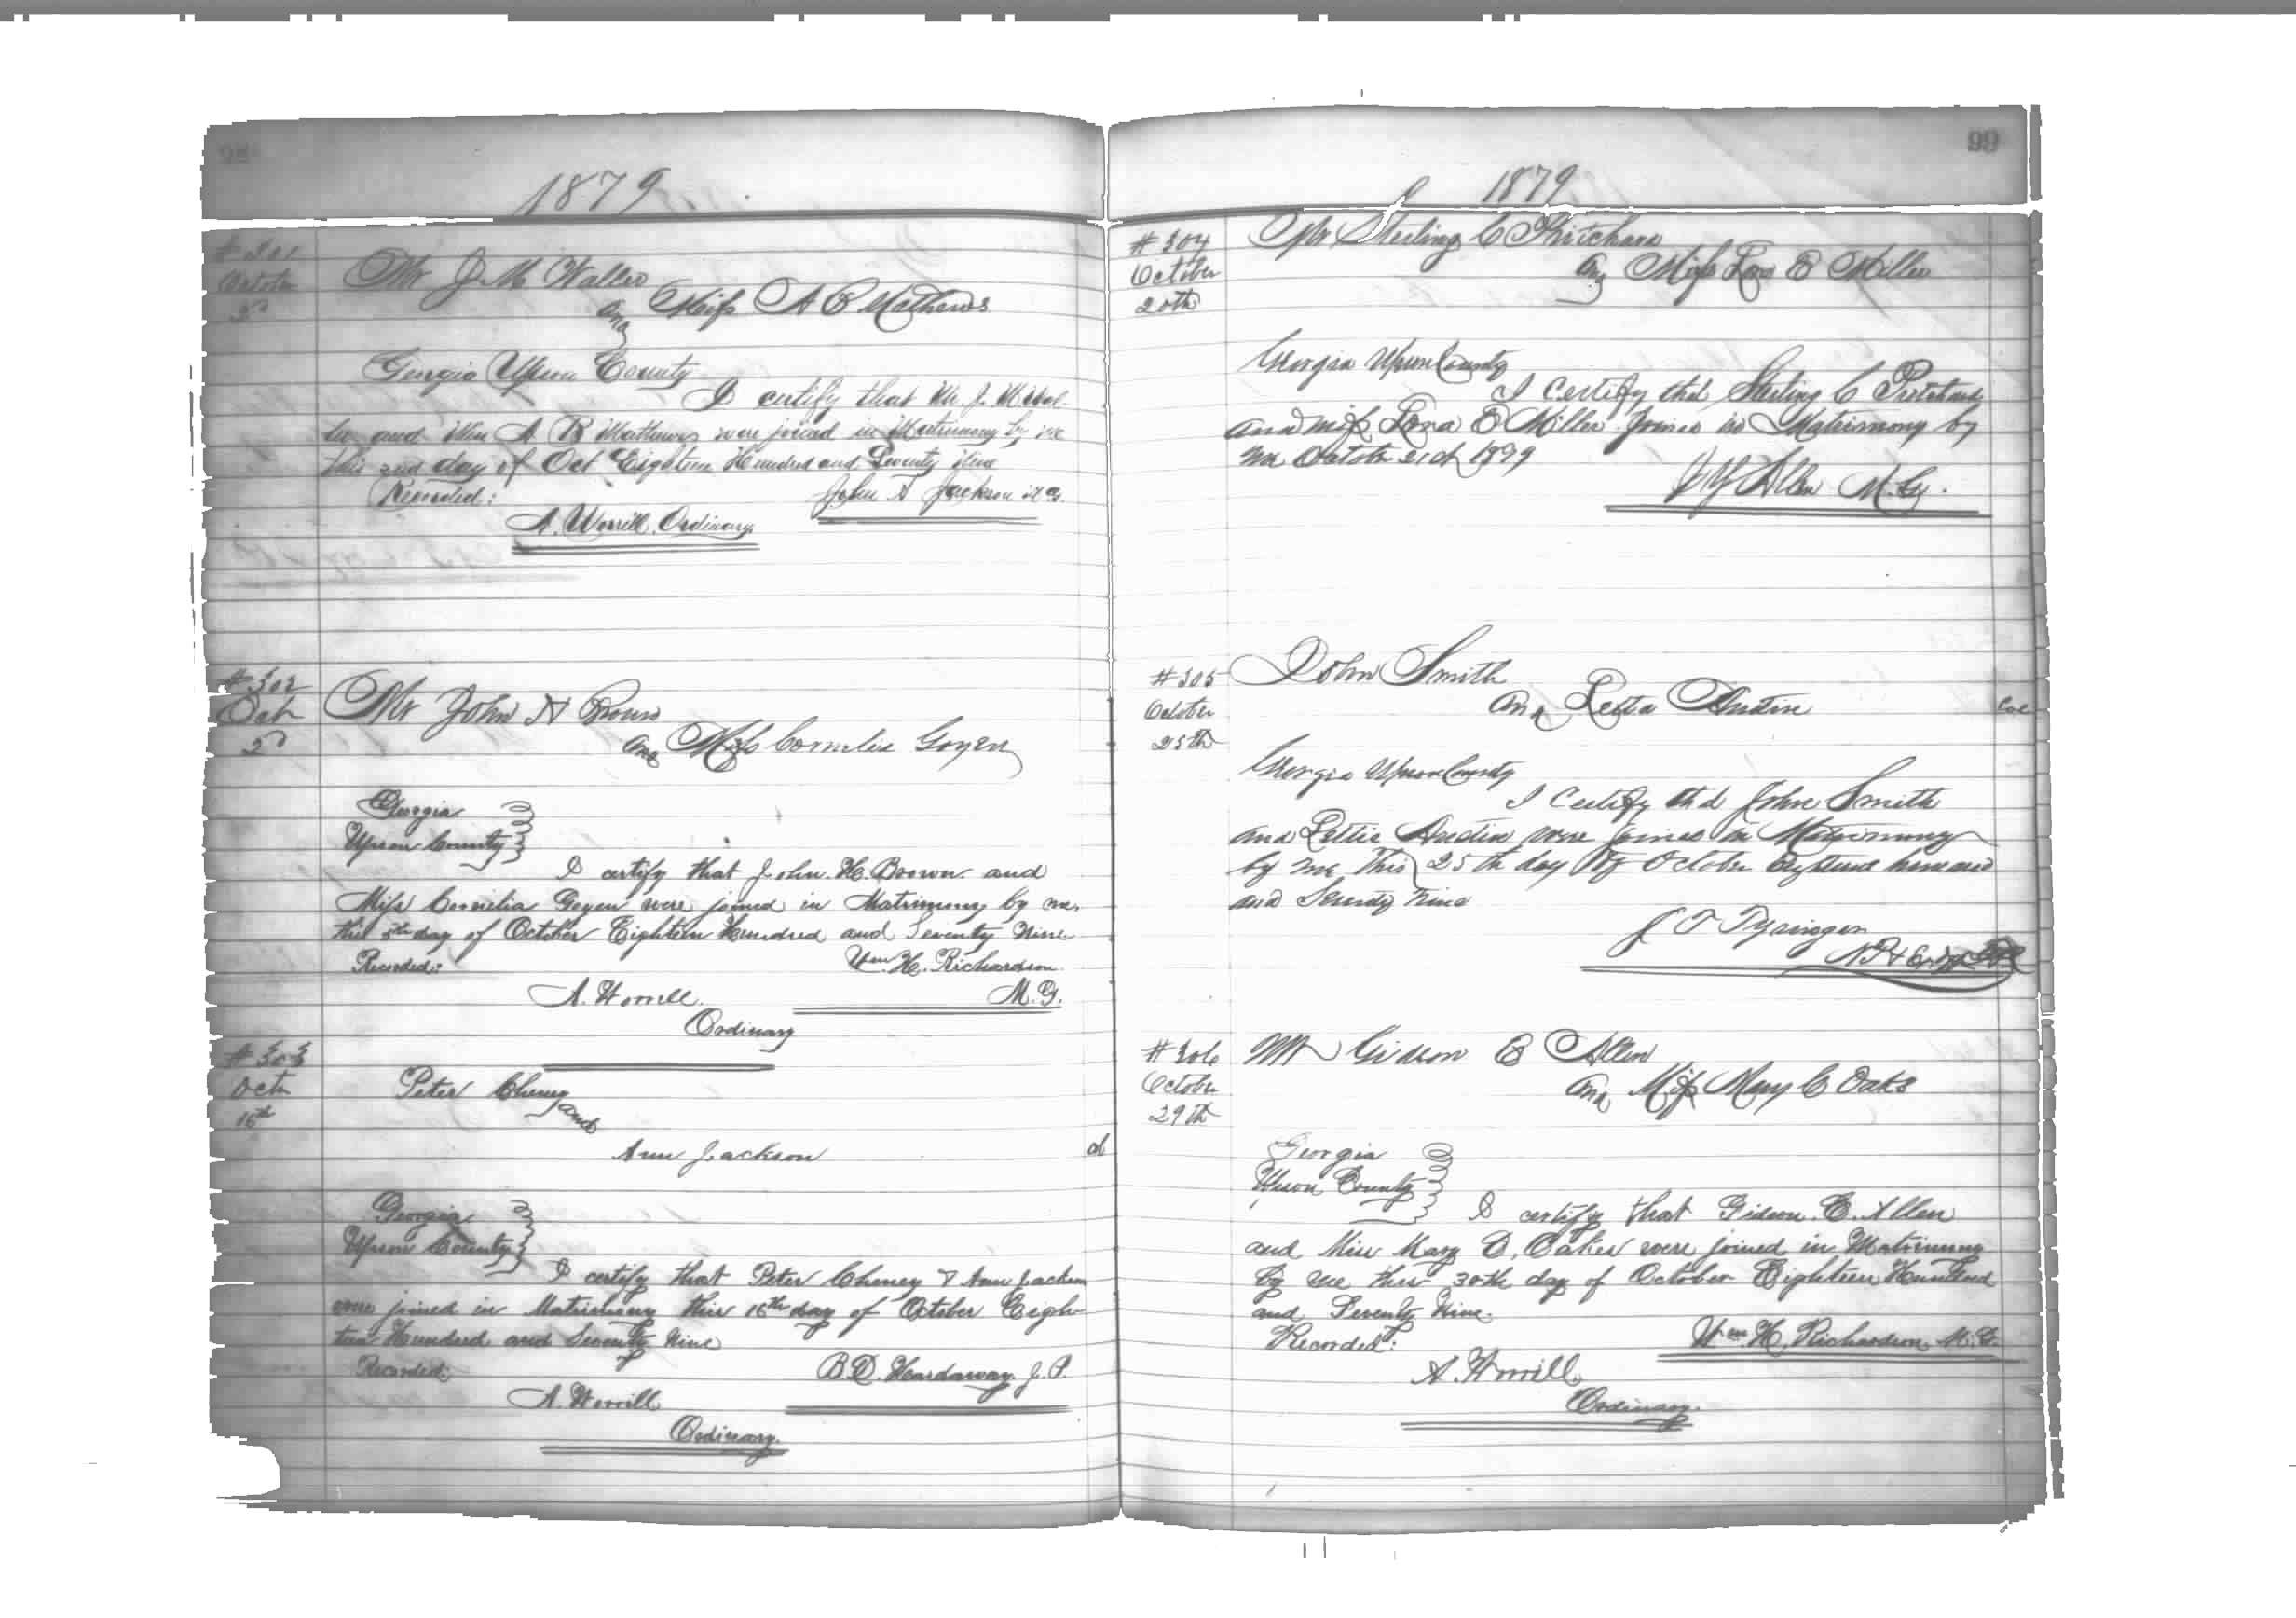 98
1879
# 301
October
2d
Mr J. M. Waller
and Miss A B Mathews
Georgia Upson County
I certify that Mr. J. M Wal-
ler and Miss A B Mathews were joined in Matrimony by me
this 2nd day of Oct Eighteen Hundred and Seventy Nine
Recorded:
John A Jackson M G.
A. Worrill, Ordinary
# 302
Octr
2d
Mr John H Brown
and Miss Cornelia Goyen
Georgia
Upson County
I certify that John. H. Brown and
Miss Cornelia Goyen were joined in Matrimony by me,
this 5th day of October Eighteen Hundred and Seventy Nine
Recorded:
Wm. H. Richardson
A. Worrill.
M. G.
Ordinary
# 303
Octr
16th
Peter Cheney
and
Ann Jackson
col
Georgia
Upson County
I certify that Peter Cheney & Ann Jackson
were joined in Matrimony this 16th day of October Eigh-
teen Hundred and Seventy Nine
Recorded:
B. D. Hardaway J. P.
A. Worrill
Ordinary.
99
1879
# 304
October
20th
Mr Sterling C Pritchard
and Miss Lona E Miller
Georgia Upson County
I Certify that Sterling C Pritchard
and miss Lona E Miller Joined in Matrimony by
me October 21st 1879
Allen M. G.
# 305
October
25th
John Smith
and Letta Austin
Col
Georgia Upson County
I Certify that John Smith
and Lettie Austin were Joined in Matrimony
by me this 25th day of October Eighteen hundred
and Seventy Nine
J T
# 306
October
29th
Mr Gideon E Allen
and Miss Mary C Oaks
Georgia
Upson County
I certify that Gideon. E. Allen
and Miss Mary C. Oakes were joined in Matrimony
by me this 30th day of October Eighteen Hundred
and Seventy Nine.
Recorded:
Wm. H. Richardson M. G.
A. Worrill
Ordinary.